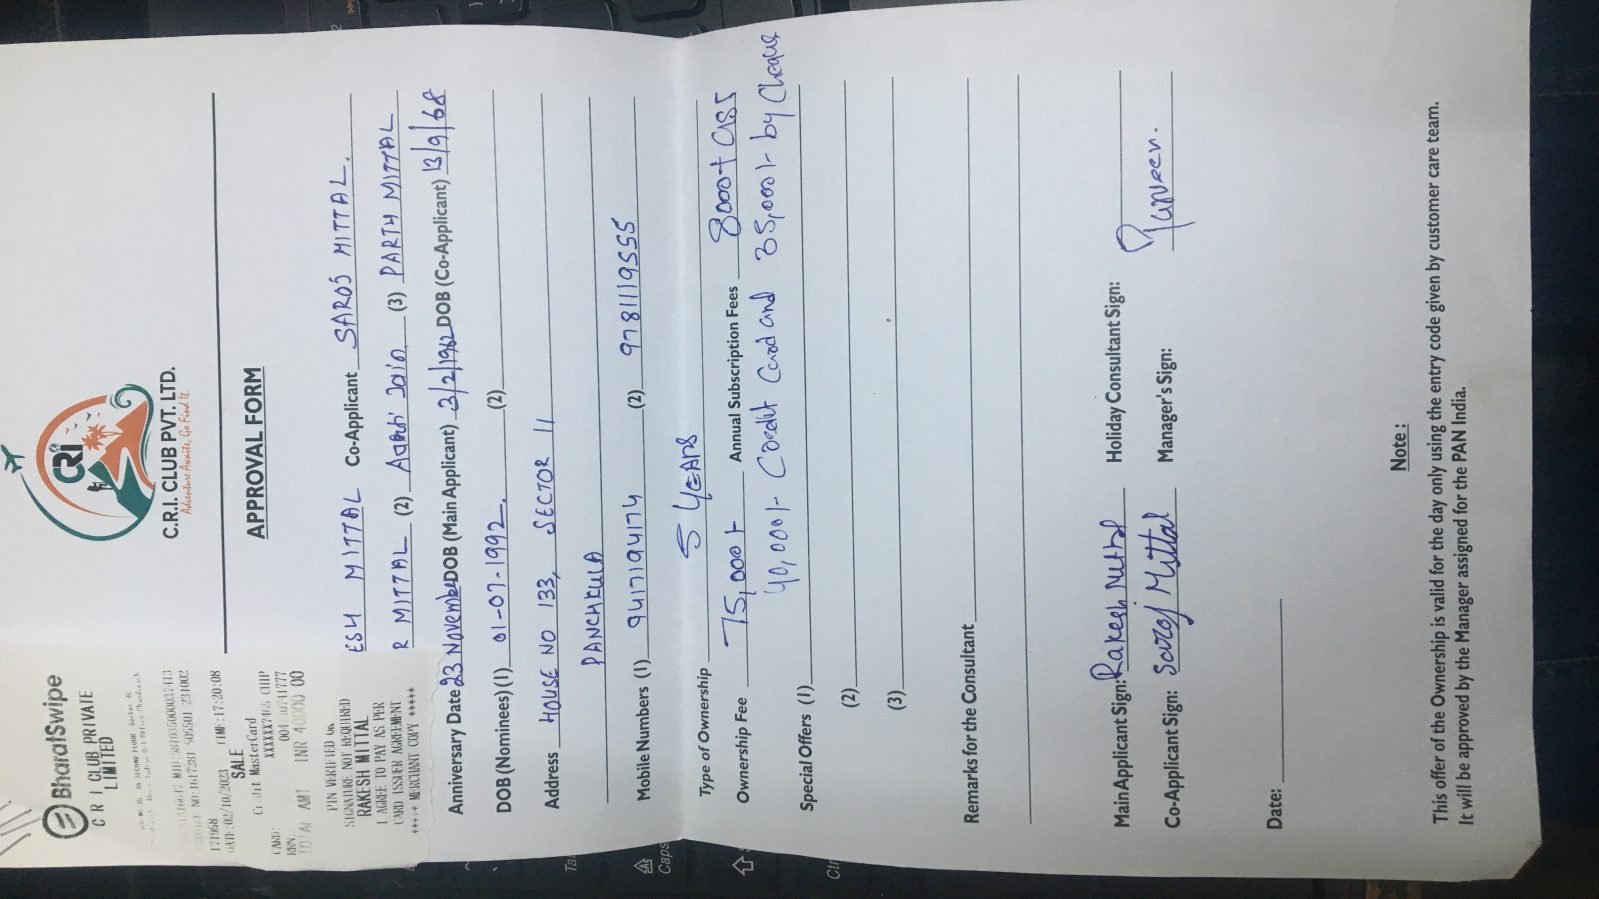 BharatSwipe
C R I CLUB PRIVATE
LIMITED
171968
DATE:02/10/2023 TIME:17:20:08
SALE
Credit MasterCard
CARD: XXXXXXX7465 CHIP
RRN:
TOTAL AMT INR 40000 00
PIN VERIFIED OK
SIGNATURE NOT REQUIRED
RAKESH MITTAL
I AGREE TO PAY AS PER
CARD ISSUER AGREEMENT
***** MERCHANT COPY *****
CRI
C.R.I. CLUB PVT. LTD.
Adventure Awaits, Go Find It.
APPROVAL FORM
ESH MITTAL Co-Applicant SAROJ MITTAL.
R MITTAL (2) Aarti Jain (3) PARTH MITTAL
Anniversary Date 23 November DOB (Main Applicant) 3/2/1962 DOB (Co-Applicant) 13/9/68
DOB (Nominees) (1) 01-07-1992. (2)
Address HOUSE NO 133, SECTOR 11
PANCHKULA
Mobile Numbers (1) 9417194174 (2) 9781119555
Type of Ownership 5 YEARS
Ownership Fee 75,000/- Annual Subscription Fees 8000+
Special Offers (1) 40,000/- Credit Card and 35,000/- by Cheque
(2)
(3)
Remarks for the Consultant
Main Applicant Sign: Rakesh Mittal Holiday Consultant Sign:
Co-Applicant Sign: Saroj Mittal Manager's Sign: Parveen.
Date:
Note :
This offer of the Ownership is valid for the day only using the entry code given by customer care team.
It will be approved by the Manager assigned for the PAN India.
Caps